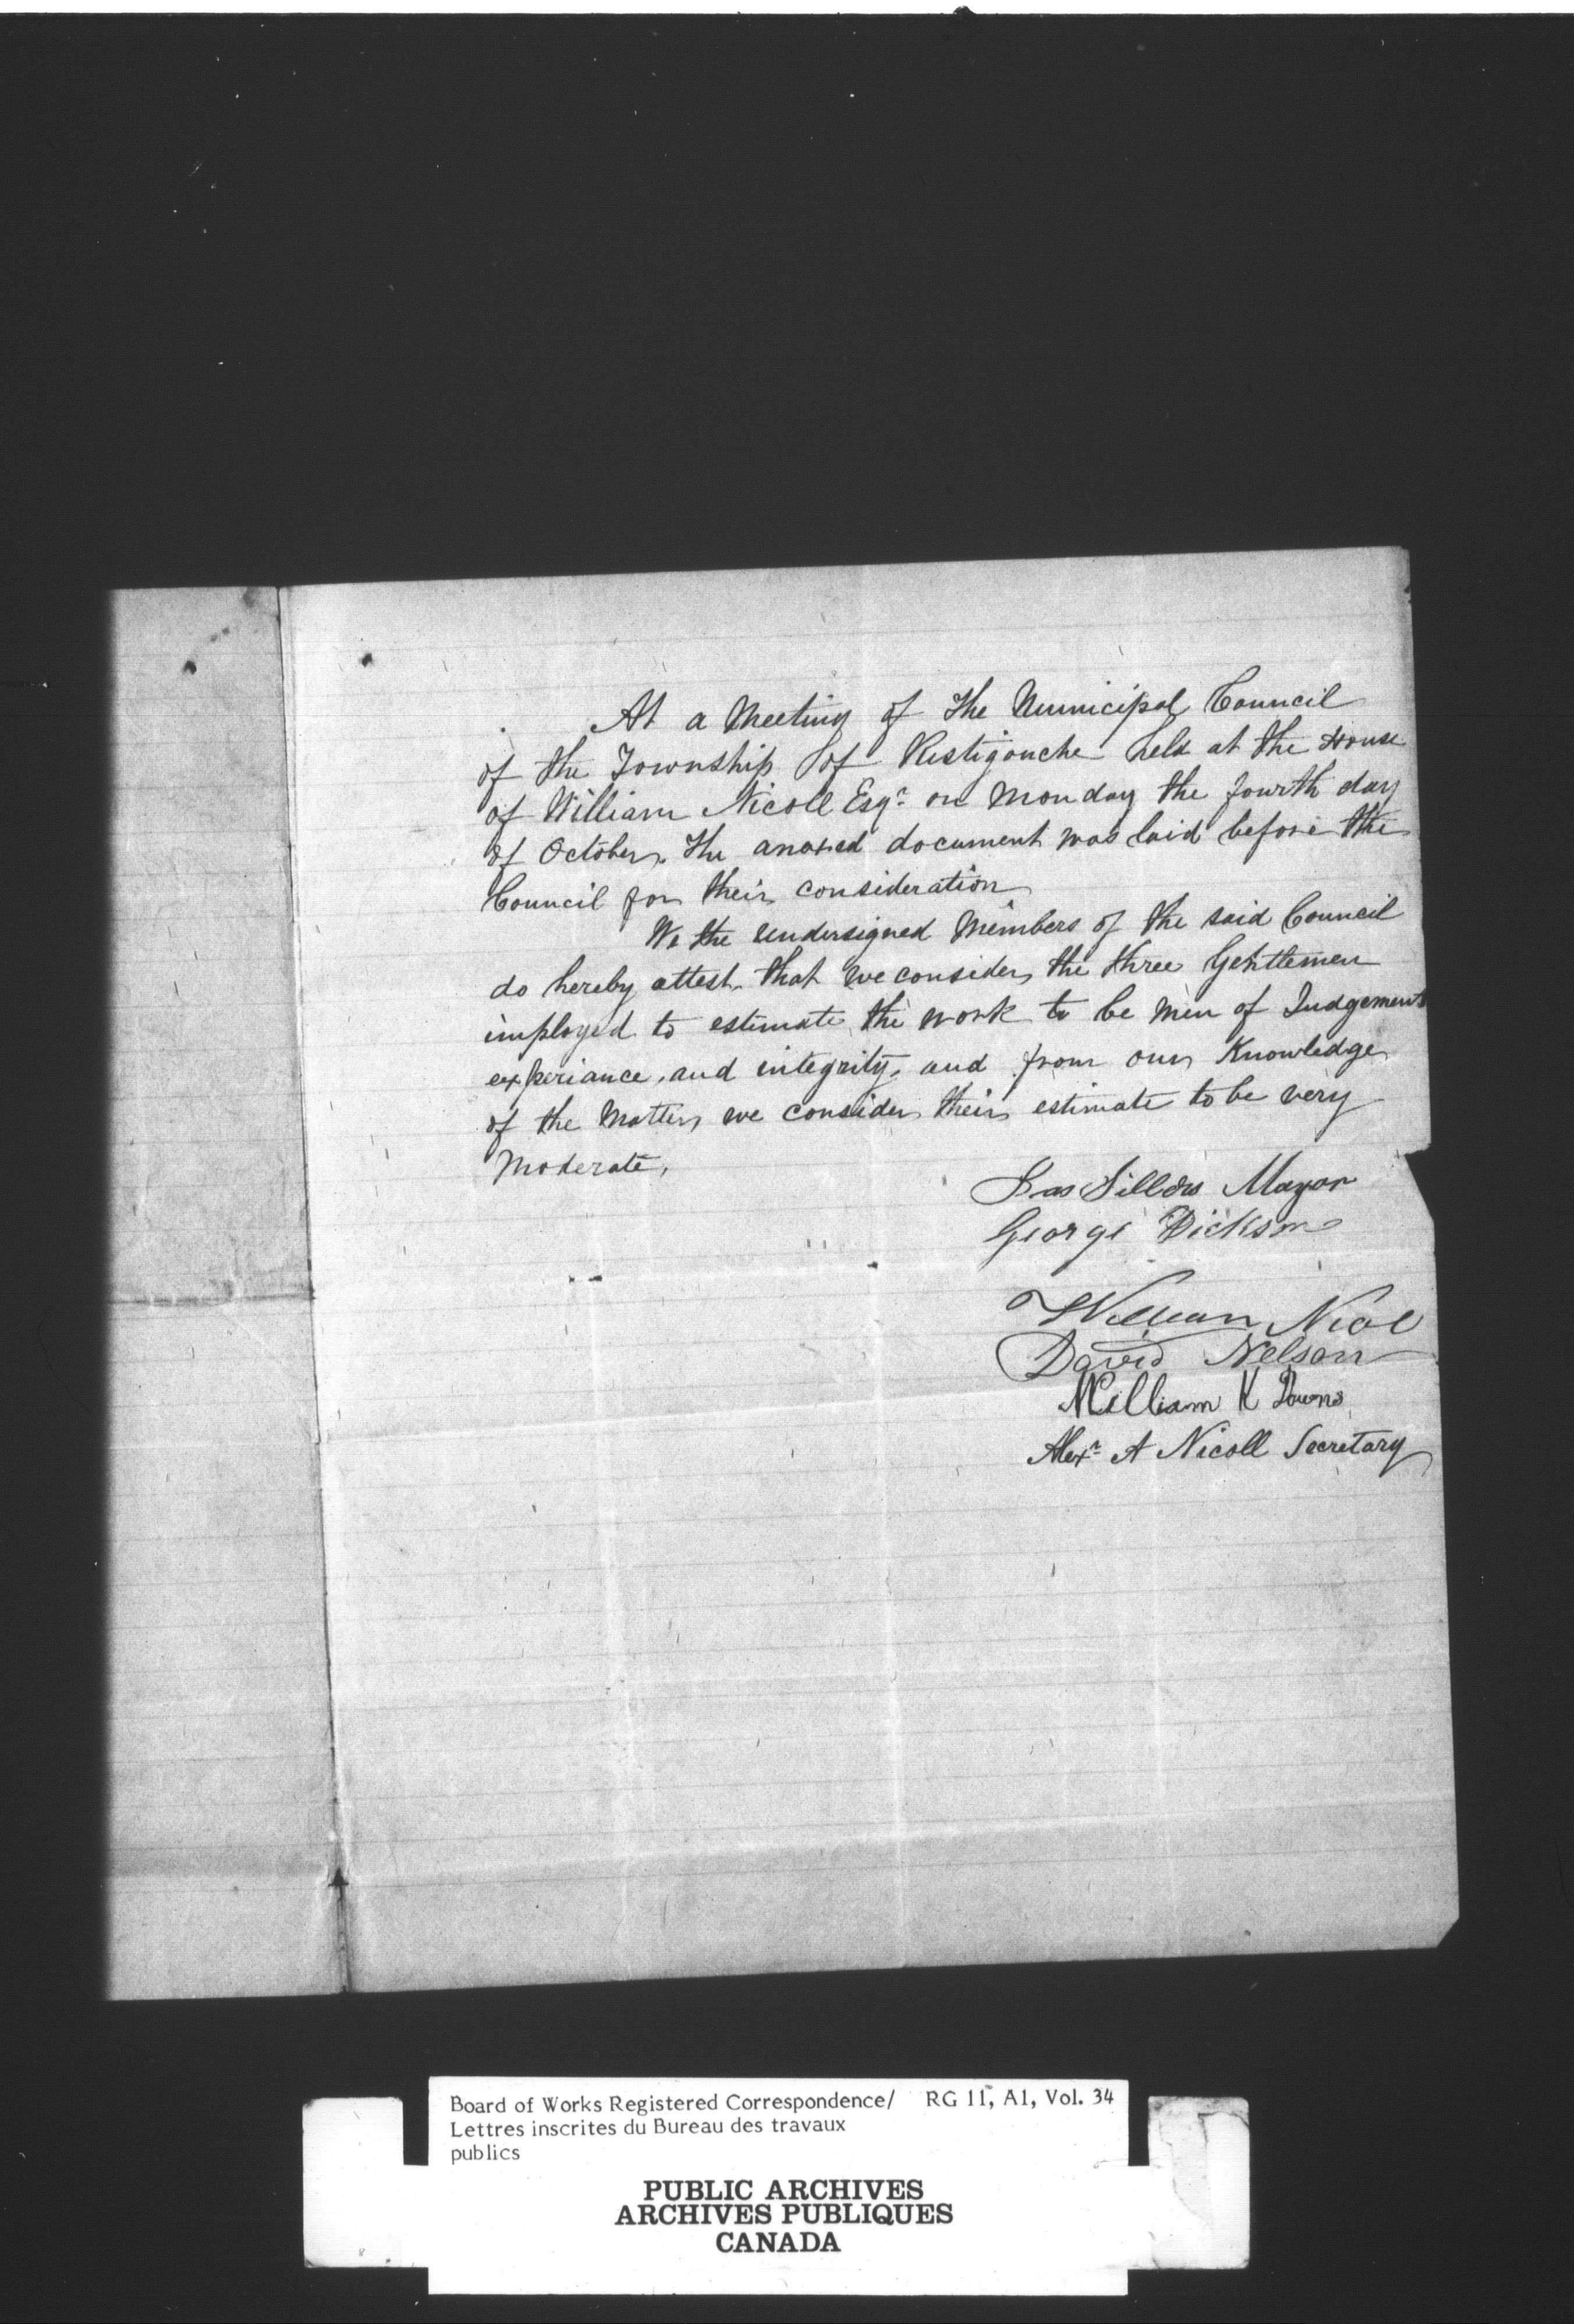 At a Meeting of the Municipal Council
of the Township of Restigouche held at the House
of William Nicoll Esqr on Monday the fourth day
of October. The anaxed document was laid before the
Council for their consideration
We the undersigned Members of the said Council
do hereby attest that we consider the three Gentlemen
imployed to estimate the work to be men of Judgement
experiance, and integrity, and from our Knowledge
of the Matter we consider their estimate to be very
Moderate,
Mayor
George Dickson
William Nicol
David Nelson
William K Downs
Alexr A Nicoll Secretary
Board of Works Registered Correspondence/ RG 11, A1, Vol. 34
Lettres inscrites du Bureau des travaux
publics
PUBLIC ARCHIVES
ARCHIVES PUBLIQUES
CANADA